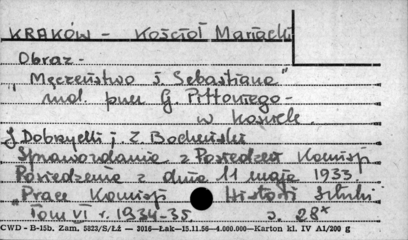 KRAKÓW - Kościół Mariacki
Obraz -
"Męczeństwo ś. Sebastiana"
mal. przez G. Pittoniego -
w kościele.
J. Dobrzycki i Z. Bocheński
Sprawozdania z Posiedzeń Komisji
Posiedzenie z dnia 11 maja 1933.
"Prace Komisji Historii Sztuki
Tom VI r. 1934-35 s. 28*
CWD - B-15b. Zam. 5823/S/Łź — 3016—Łak—15.11.56—4.000.000—Karton kl. IV A1/200 g